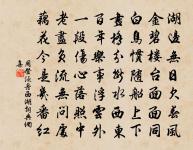 湖邊無日欠春風
金碧樓台面面同
白鳥慣隨船上下
畫橋分斷水西東
百年樂事浮雲外
一段傷心落照中
老盡風流無問處
藕花今是幾番紅
周登 西湖